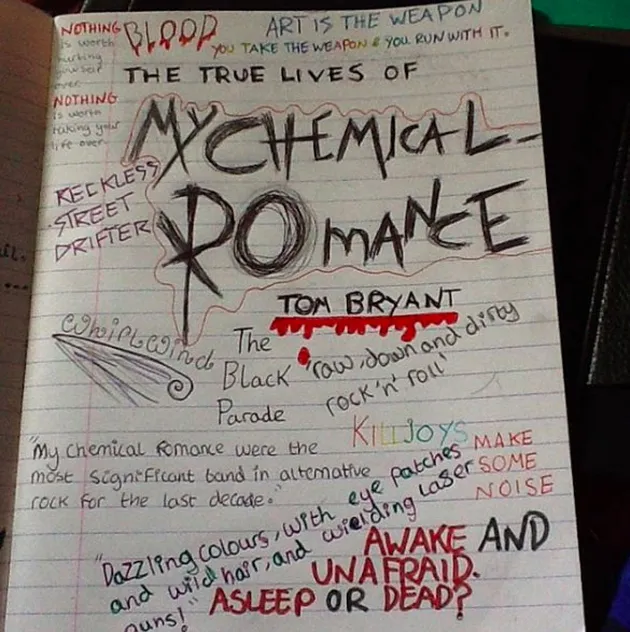 NOTHING
is worth
hurting
yourself
over.
NOTHING
is worth
taking your
life over.
BLOOD
ART IS THE WEAPON
YOU TAKE THE WEAPON & YOU RUN WITH IT.
THE TRUE LIVES OF
MY CHEMICAL
ROMANCE
RECKLESS
STREET
DRIFTER
TOM BRYANT
whirlwind
The
Black
Parade
'raw, down and dirty
rock 'n' roll'
KILLJOYS
MAKE
SOME
NOISE
"My Chemical Romance were the
most significant band in alternative
rock for the last decade."
"Dazzling colours, with eye patches
and wild hair, and wielding laser
guns!"
AWAKE AND
UNAFRAID.
ASLEEP OR DEAD?